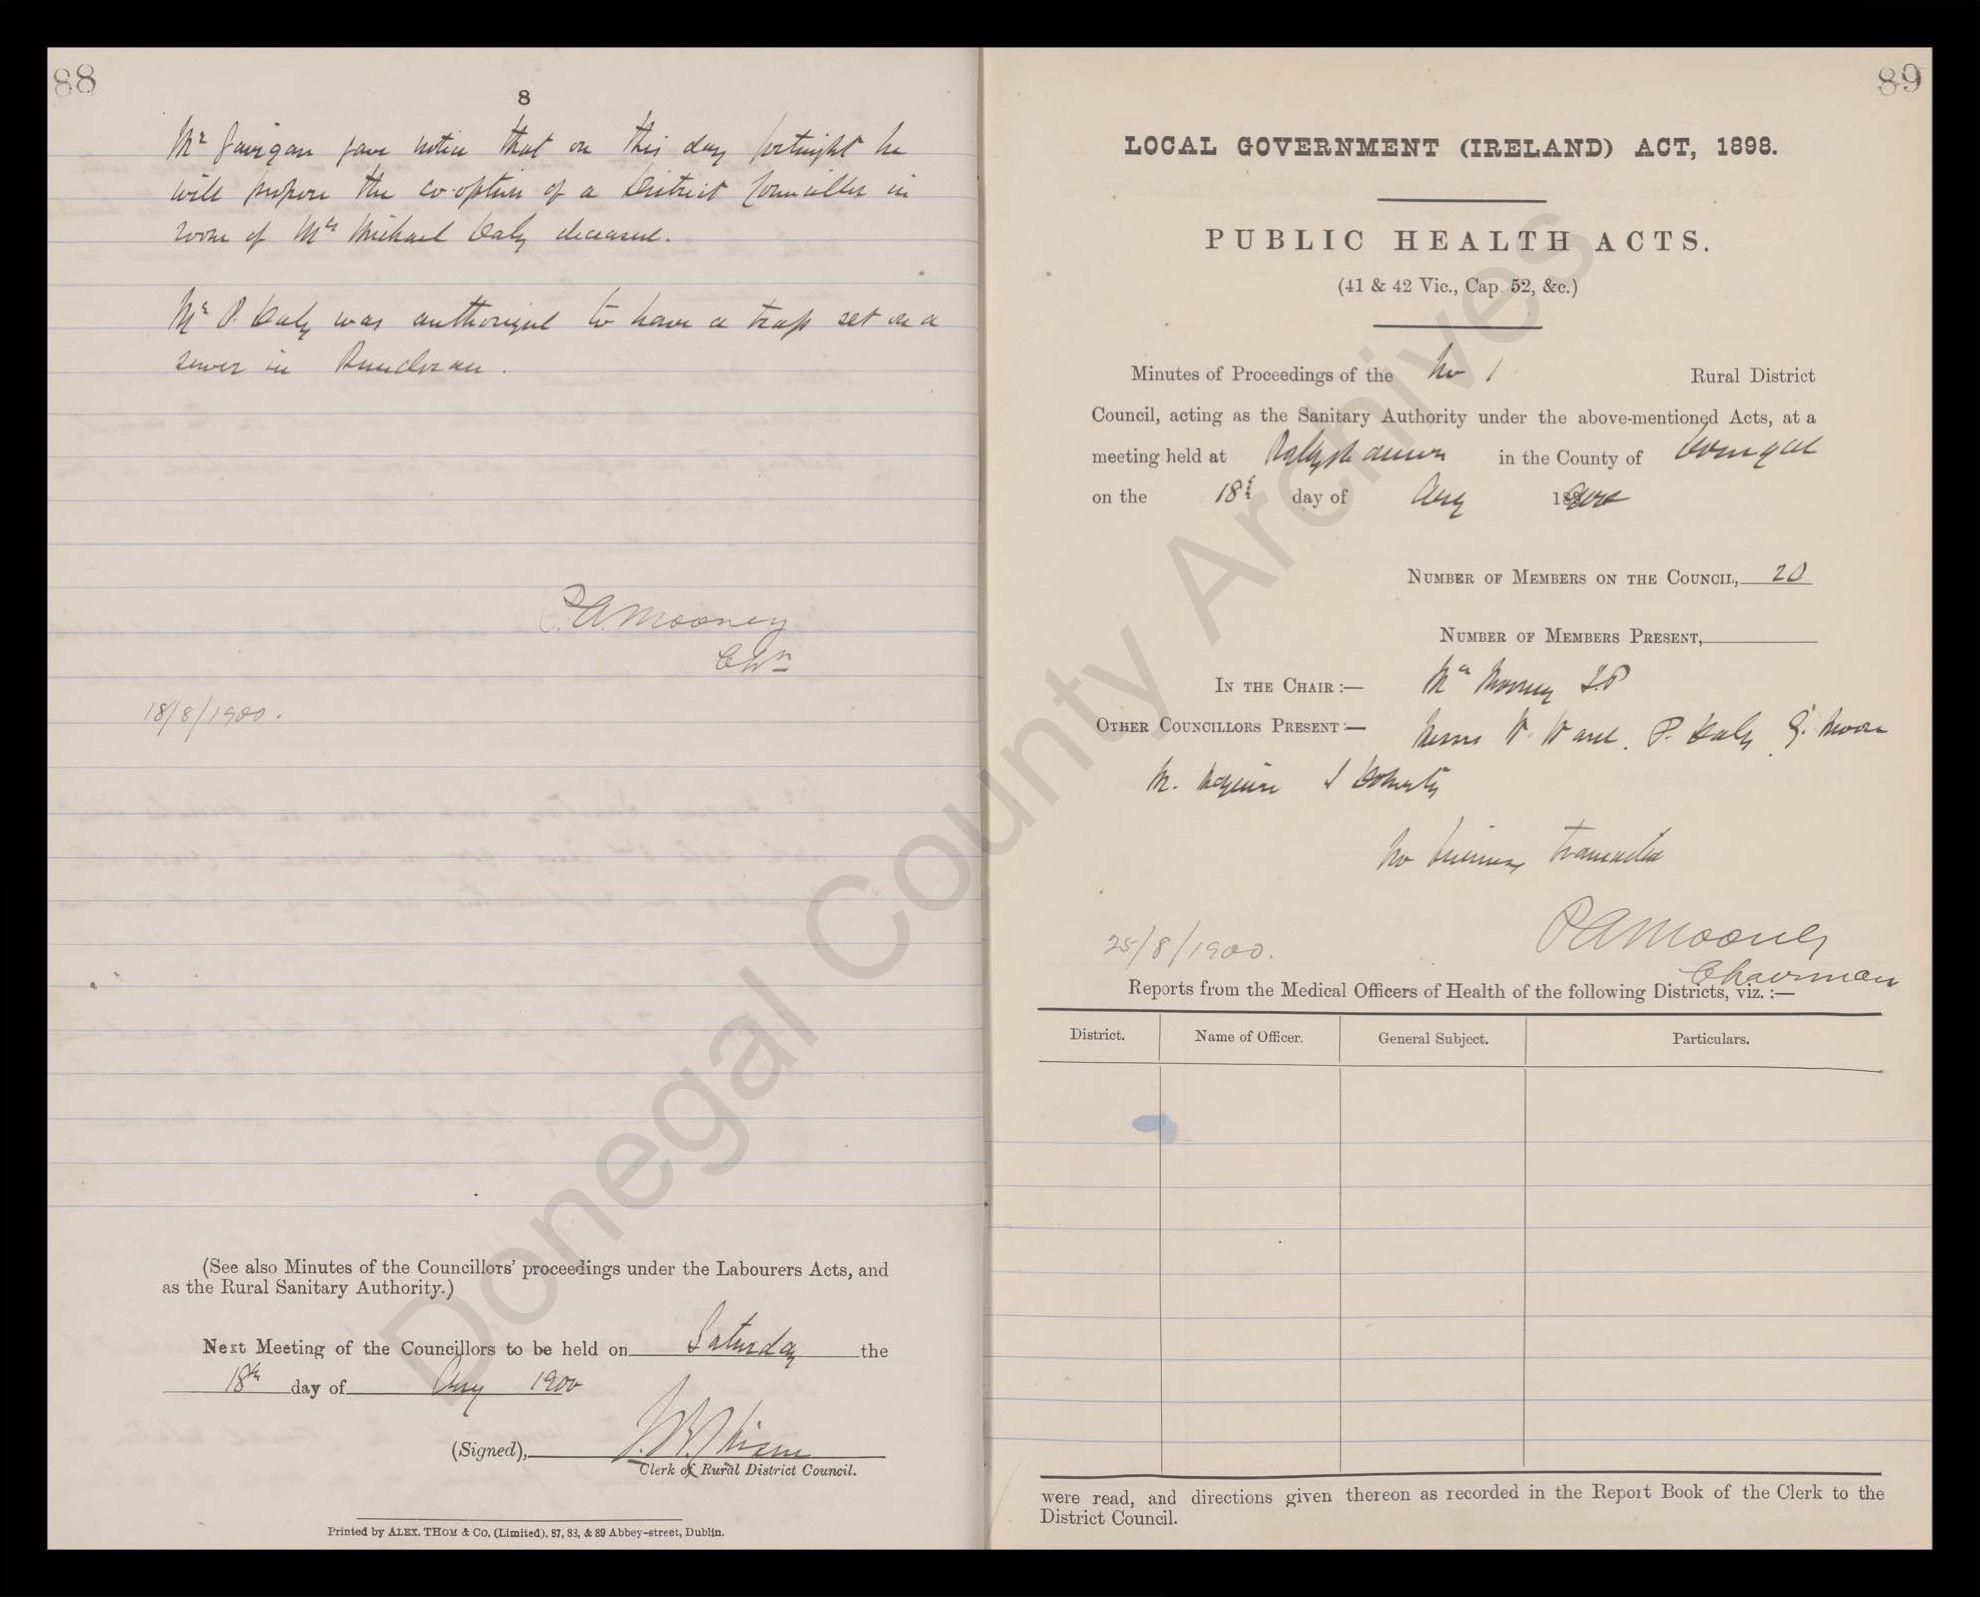 88
8
Mr Gavigan gave notice that on this day fortnight he
will propose the co-option of a District Councillor in
room of Mr Michael Daly deceased.
Mr P. Daly was authorised to have a trap set on a
sewer in Bundoran.
P.A. Mooney
Chn
18/8/1900.
(See also Minutes of the Councillors' proceedings under the Labourers Acts, and
as the Rural Sanitary Authority.)
Next Meeting of the Councillors to be held on Saturday the
18th day of Aug 1900
(Signed),
Clerk of Rural District Council.
Printed by ALEX. THOM & Co. (Limited), 87, 88, & 89 Abbey-street, Dublin.
89
LOCAL GOVERNMENT (IRELAND) ACT, 1898.
PUBLIC HEALTH ACTS.
(41 & 42 Vic., Cap. 52, &c.)
Minutes of Proceedings of the No 1 Rural District
Council, acting as the Sanitary Authority under the above-mentioned Acts, at a
meeting held at Ballyshannon in the County of Donegal
on the 18th day of Aug 1900
NUMBER OF MEMBERS ON THE COUNCIL, 20
NUMBER OF MEMBERS PRESENT,
IN THE CHAIR :— Mr Mooney J.P
OTHER COUNCILLORS PRESENT :— Messrs W. Ward. P. Daly G. Moore
M. Maguire J Doherty
No business transacted
PA Mooney
25/8/1900.
Chairman
Reports from the Medical Officers of Health of the following Districts, viz. :—
District. Name of Officer. General Subject. Particulars.
were read, and directions given thereon as recorded in the Report Book of the Clerk to the
District Council.
Donegal County Archives